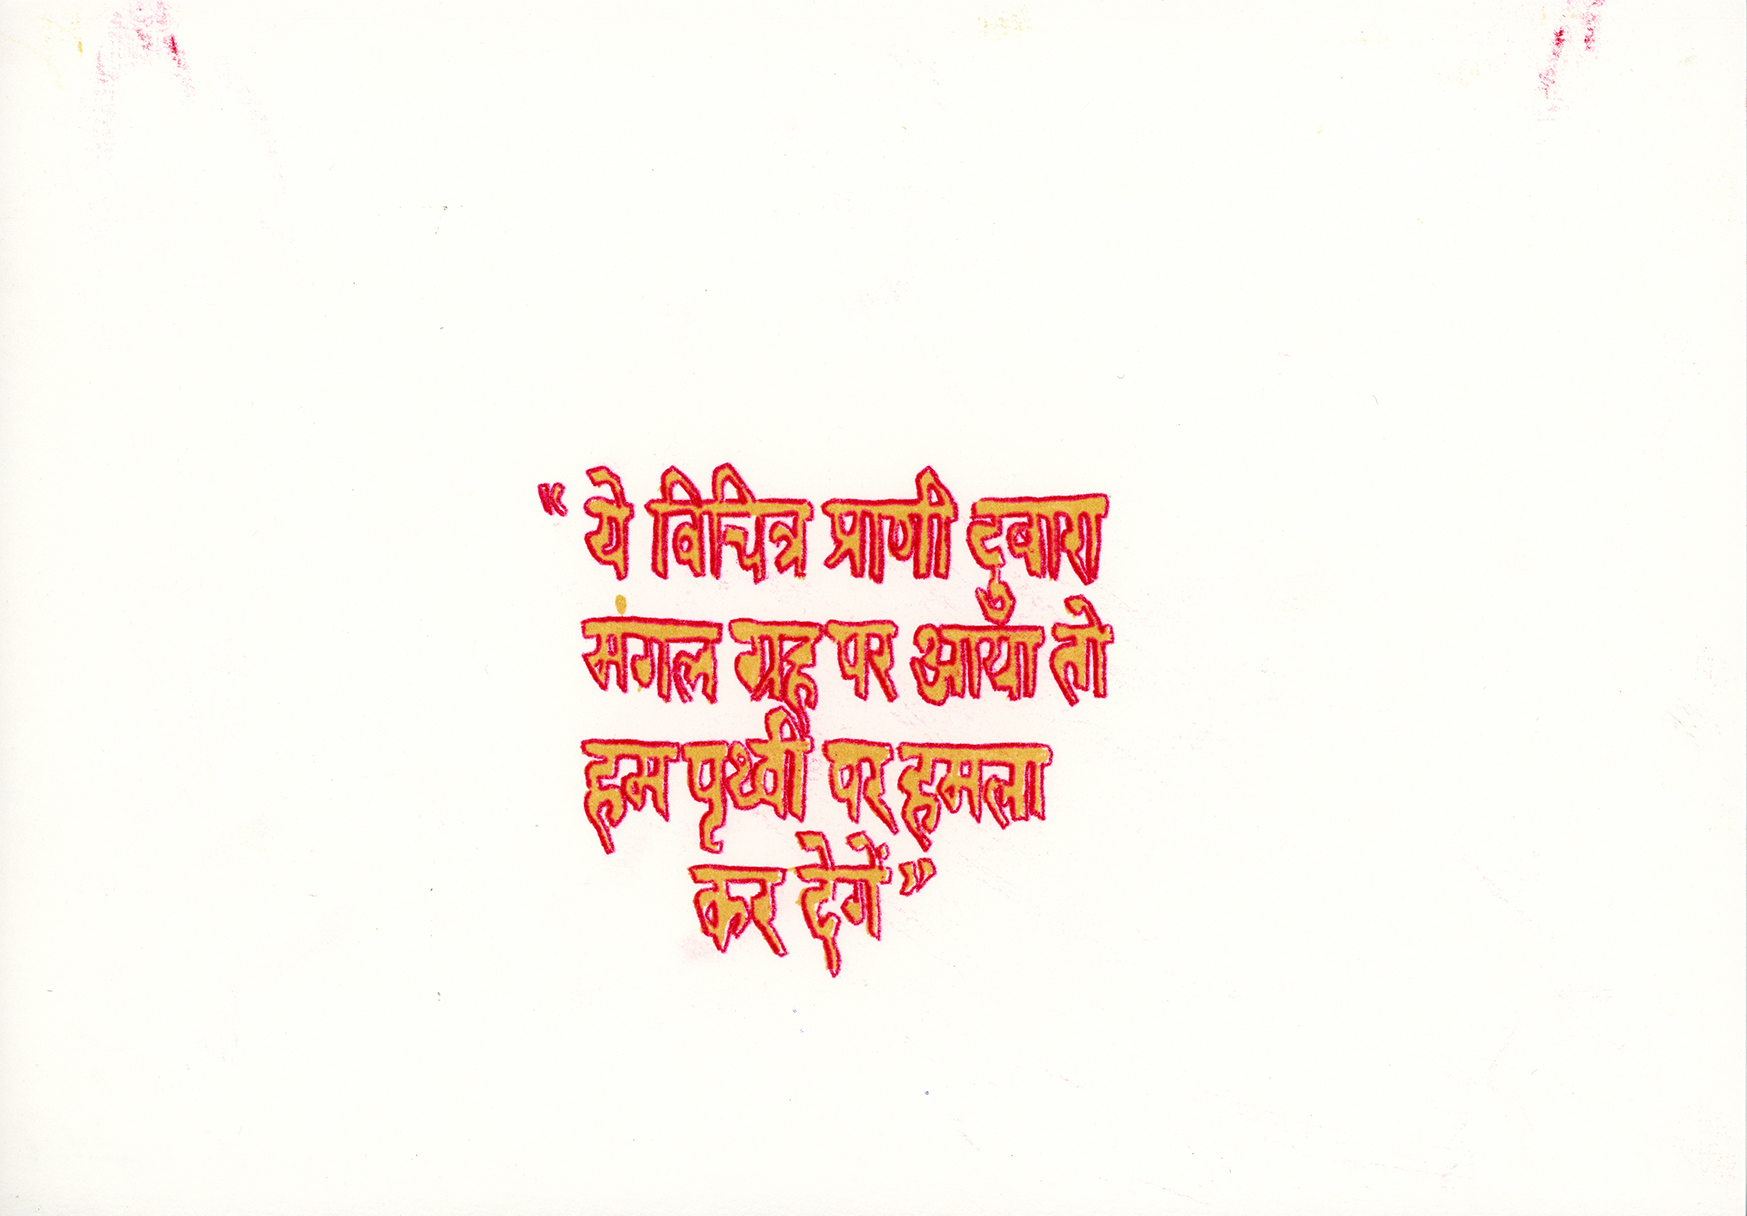 “ ये विचित्र प्राणी दुबारा
मंगल ग्रह पर आया तो
हम पृथ्वी पर हमला
कर देगें ”